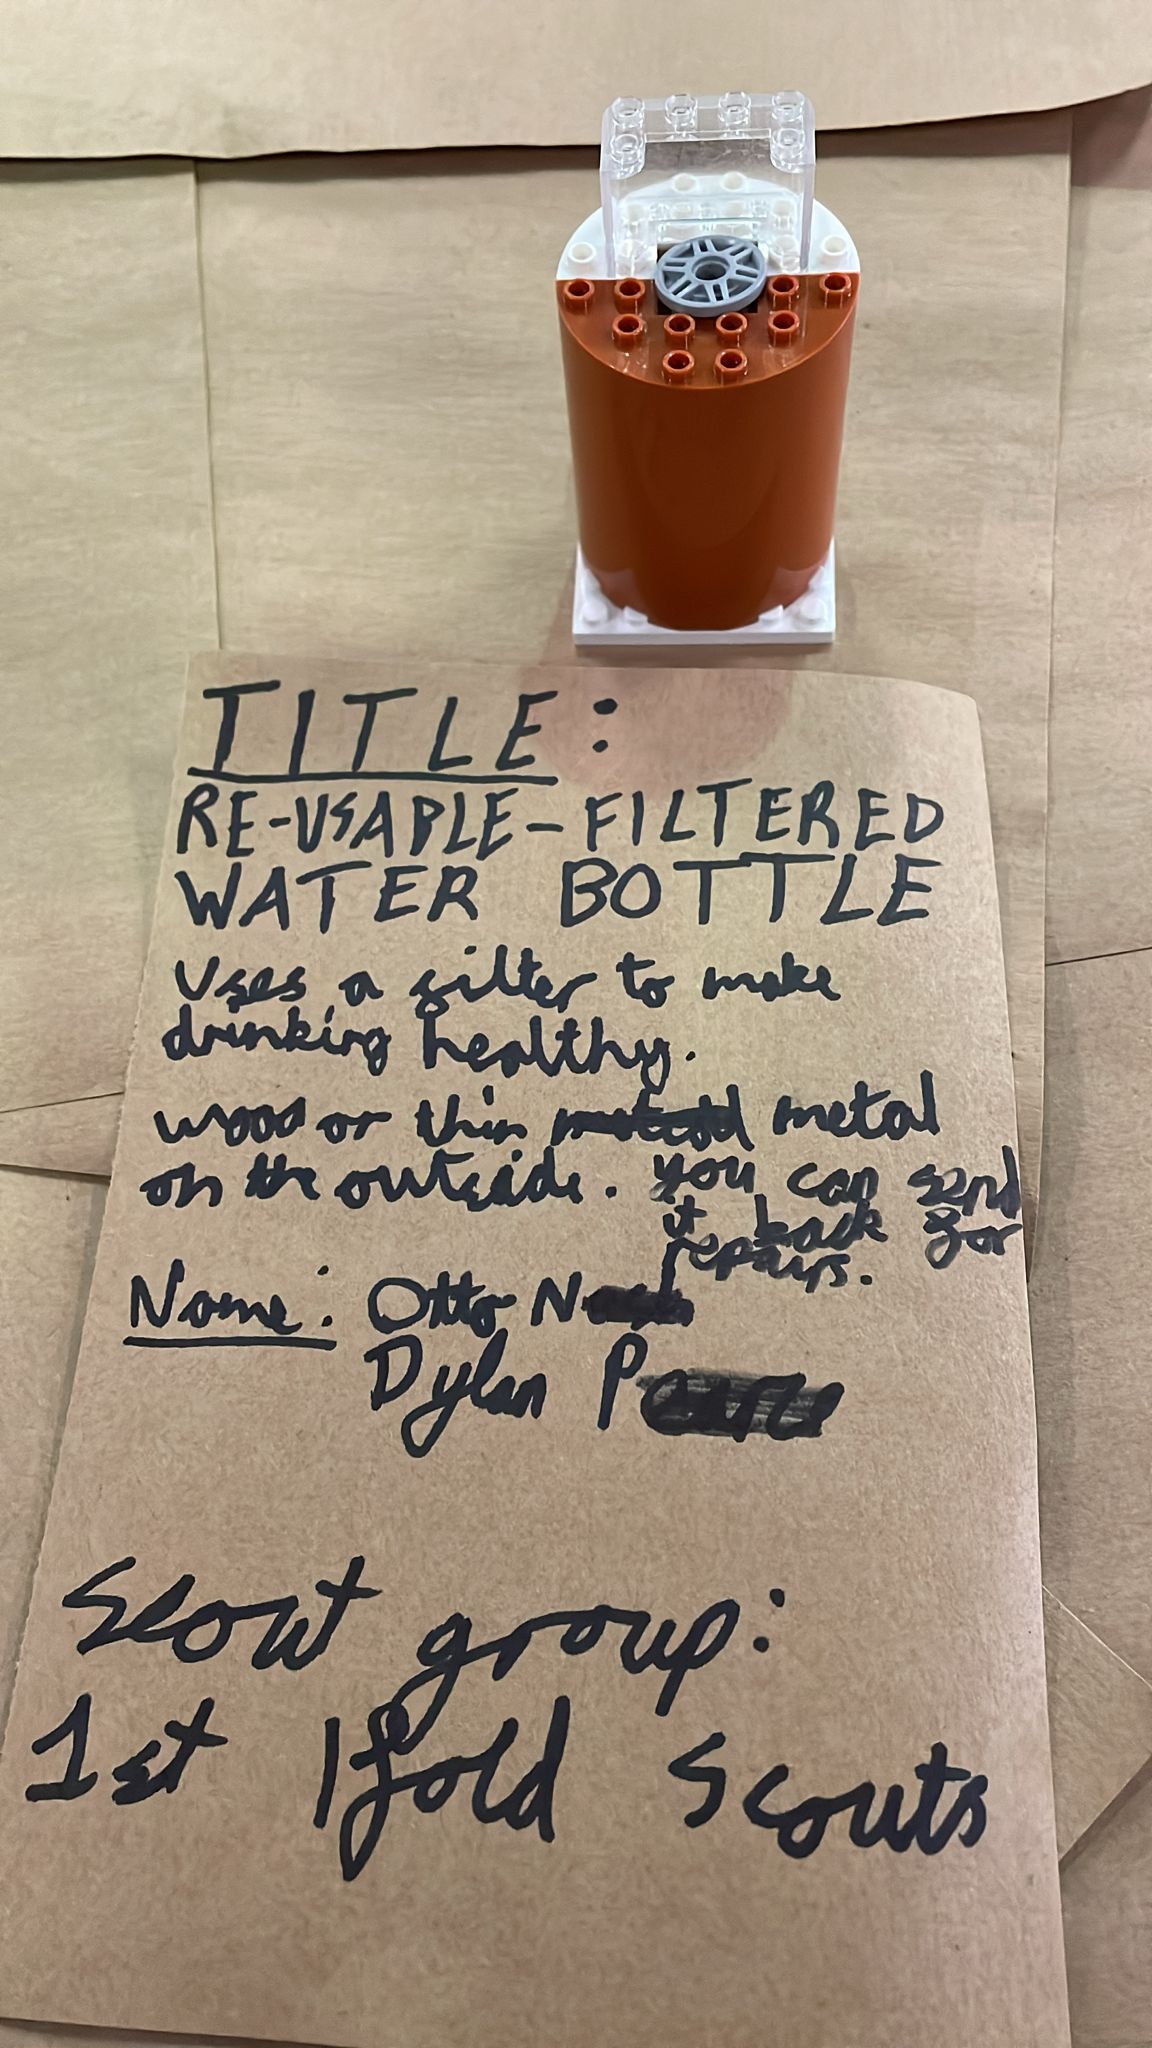 TITLE:
RE-USABLE-FILTERED
WATER BOTTLE
Uses a filter to make
drinking healthy.
wood or thin metal
on the outside. you can send
it back for
repairs.
Name: Otto N
Dylan P
Scout group:
1st Ifold Scouts